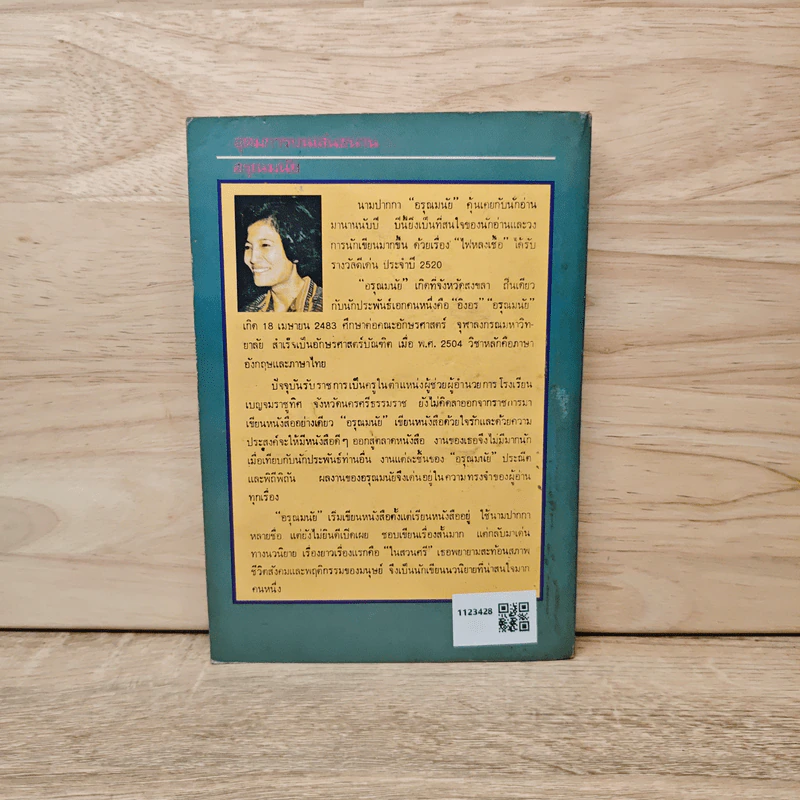 อุดมการบนเส้นขนาน
อรุณมนัย
นามปากกา "อรุณมนัย" คุ้นเคยกับนักอ่าน
มานานนับปี ปีนี้ยิ่งเป็นที่สนใจของนักอ่านและวง
การนักเขียนมากขึ้น ด้วยเรื่อง "ไฟหลงเชื้อ" ได้รับ
รางวัลดีเด่น ประจำปี 2520
"อรุณมนัย" เกิดที่จังหวัดสงขลา ถิ่นเดียว
กับนักประพันธ์เอกคนหนึ่งคือ "อิงอร" "อรุณมนัย"
เกิด 18 เมษายน 2483 ศึกษาต่อคณะอักษรศาสตร์ จุฬาลงกรณมหาวิท-
ยาลัย สำเร็จเป็นอักษรศาสตร์บัณฑิต เมื่อ พ.ศ. 2504 วิชาหลักคือภาษา
อังกฤษและภาษาไทย
ปัจจุบันรับราชการเป็นครูในตำแหน่งผู้ช่วยผู้อำนวยการ โรงเรียน
เบญจมราชูทิศ จังหวัดนครศรีธรรมราช ยังไม่คิดลาออกจากราชการมา
เขียนหนังสืออย่างเดียว "อรุณมนัย" เขียนหนังสือด้วยใจรักและด้วยความ
ประสงค์จะให้มีหนังสือดีๆ ออกสู่ตลาดหนังสือ งานของเธอจึงไม่มีมากนัก
เมื่อเทียบกับนักประพันธ์ท่านอื่น งานแต่ละชิ้นของ "อรุณมนัย" ประณีต
และพิถีพิถัน ผลงานของอรุณมนัยจึงเด่นอยู่ในความทรงจำของผู้อ่าน
ทุกเรื่อง
"อรุณมนัย" เริ่มเขียนหนังสือตั้งแต่เรียนหนังสืออยู่ ใช้นามปากกา
หลายชื่อ แต่ยังไม่ยินดีเปิดเผย ชอบเขียนเรื่องสั้นมาก แต่กลับมาเด่น
ทางนวนิยาย เรื่องยาวเรื่องแรกคือ "ในสวนศรี" เธอพยายามสะท้อนสภาพ
ชีวิตสังคมและพฤติกรรมของมนุษย์ จึงเป็นนักเขียนนวนิยายที่น่าสนใจมาก
คนหนึ่ง
1123428